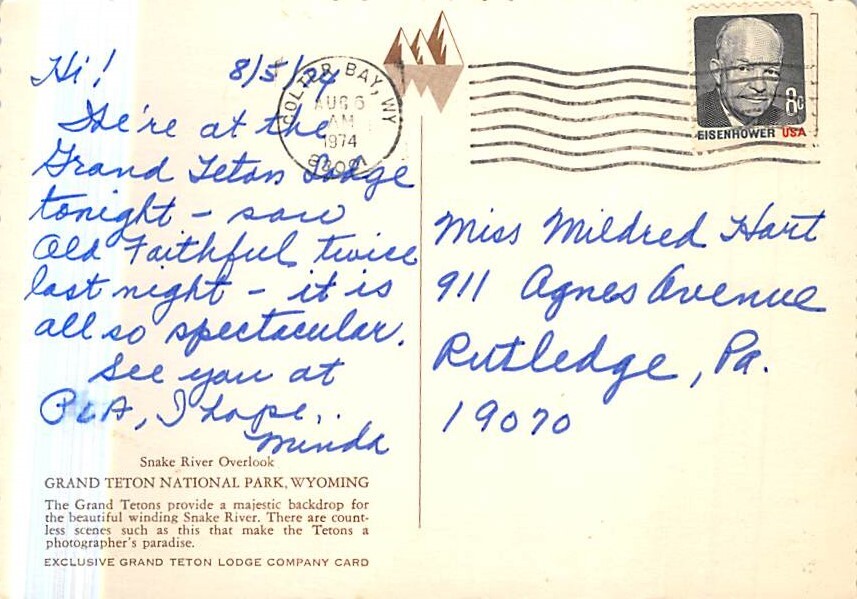 Hi! 8/5/74
We're at the
Grand Teton Lodge
tonight – saw
Old Faithful twice
last night – it is
all so spectacular.
See you at
PLA, I hope..
Minda
Snake River Overlook
GRAND TETON NATIONAL PARK, WYOMING
The Grand Tetons provide a majestic backdrop for
the beautiful winding Snake River. There are count-
less scenes such as this that make the Tetons a
photographer's paradise.
EXCLUSIVE GRAND TETON LODGE COMPANY CARD
COLTER BAY, WY
AUG 6
AM
1974
EISENHOWER USA
8c
Miss Mildred Hart
911 Agnes Avenue
Rutledge, Pa.
19070